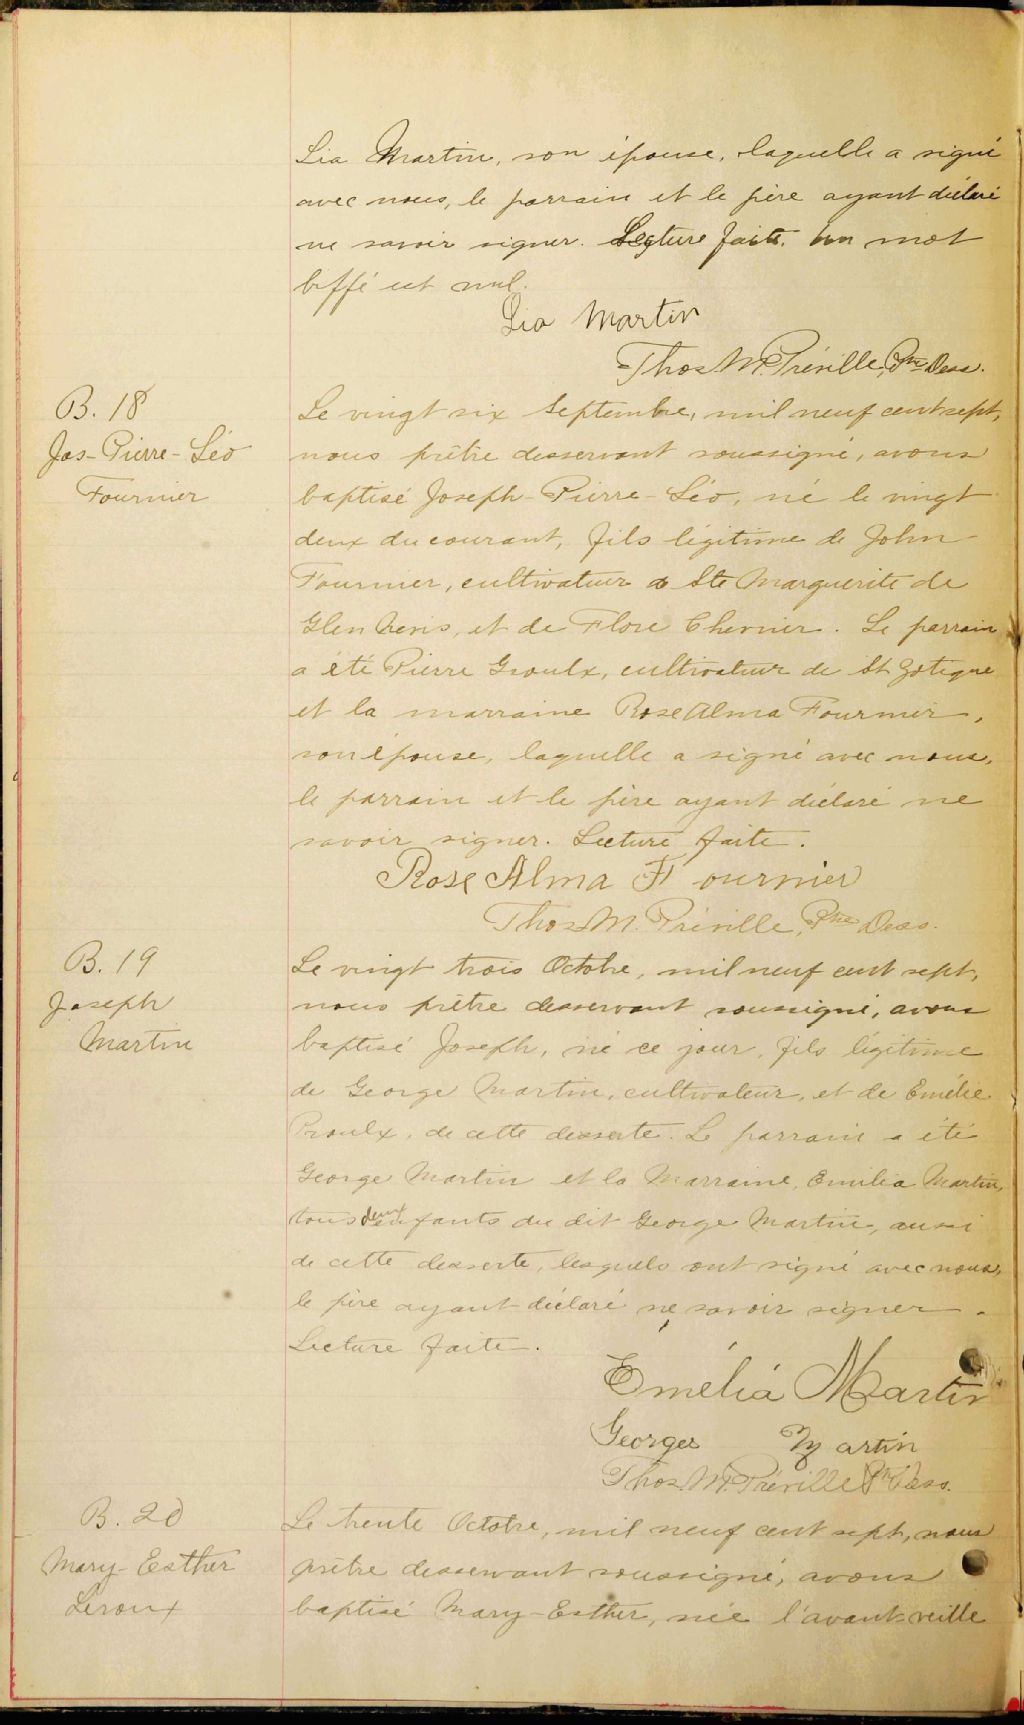 Lia Martin, son épouse, laquelle a signé
avec nous, le parrain et le père ayant déclaré
ne savoir signer. Lecture faite. Un mot
biffé est nul.
Lia Martin
Thos. M. Préville, Ptre Dess.
B. 18
Jos-Pierre-Léo
Fournier
Le vingt six Septembre, mil neuf cent sept,
nous prêtre desservant soussigné, avons
baptisé Joseph-Pierre-Léo, né le vingt
deux du courant, fils légitime de John
Fournier, cultivateur à Ste Marguerite de
Glen Nevis, et de Flore Chernier. Le parrain
a été Pierre Groulx, cultivateur de St Zotique
et la marraine Rose Alma Fournier,
son épouse, laquelle a signé avec nous,
le parrain et le père ayant déclaré ne
savoir signer. Lecture faite.
Rose Alma Fournier
Thos M. Préville, Ptre Dess.
B. 19
Joseph
Martin
Le vingt trois Octobre, mil neuf cent sept,
nous prêtre desservant soussigné, avons
baptisé Joseph, né ce jour, fils légitime
de George Martin, cultivateur, et de Emélie
Proulx, de cette desserte. Le parrain a été
George Martin et la Marraine, Emilia Martin,
tous deux enfants du dit George Martin, aussi
de cette desserte, lesquels ont signé avec nous,
le père ayant déclaré ne savoir signer.
Lecture faite.
Emélia Martin
Georges Martin
Thos. M. Préville Ptre Dess.
B. 20
Mary-Esther
Leroux
Le trente Octobre, mil neuf cent sept, nous
prêtre desservant soussigné, avons
baptisé Mary-Esther, née l'avant-veille